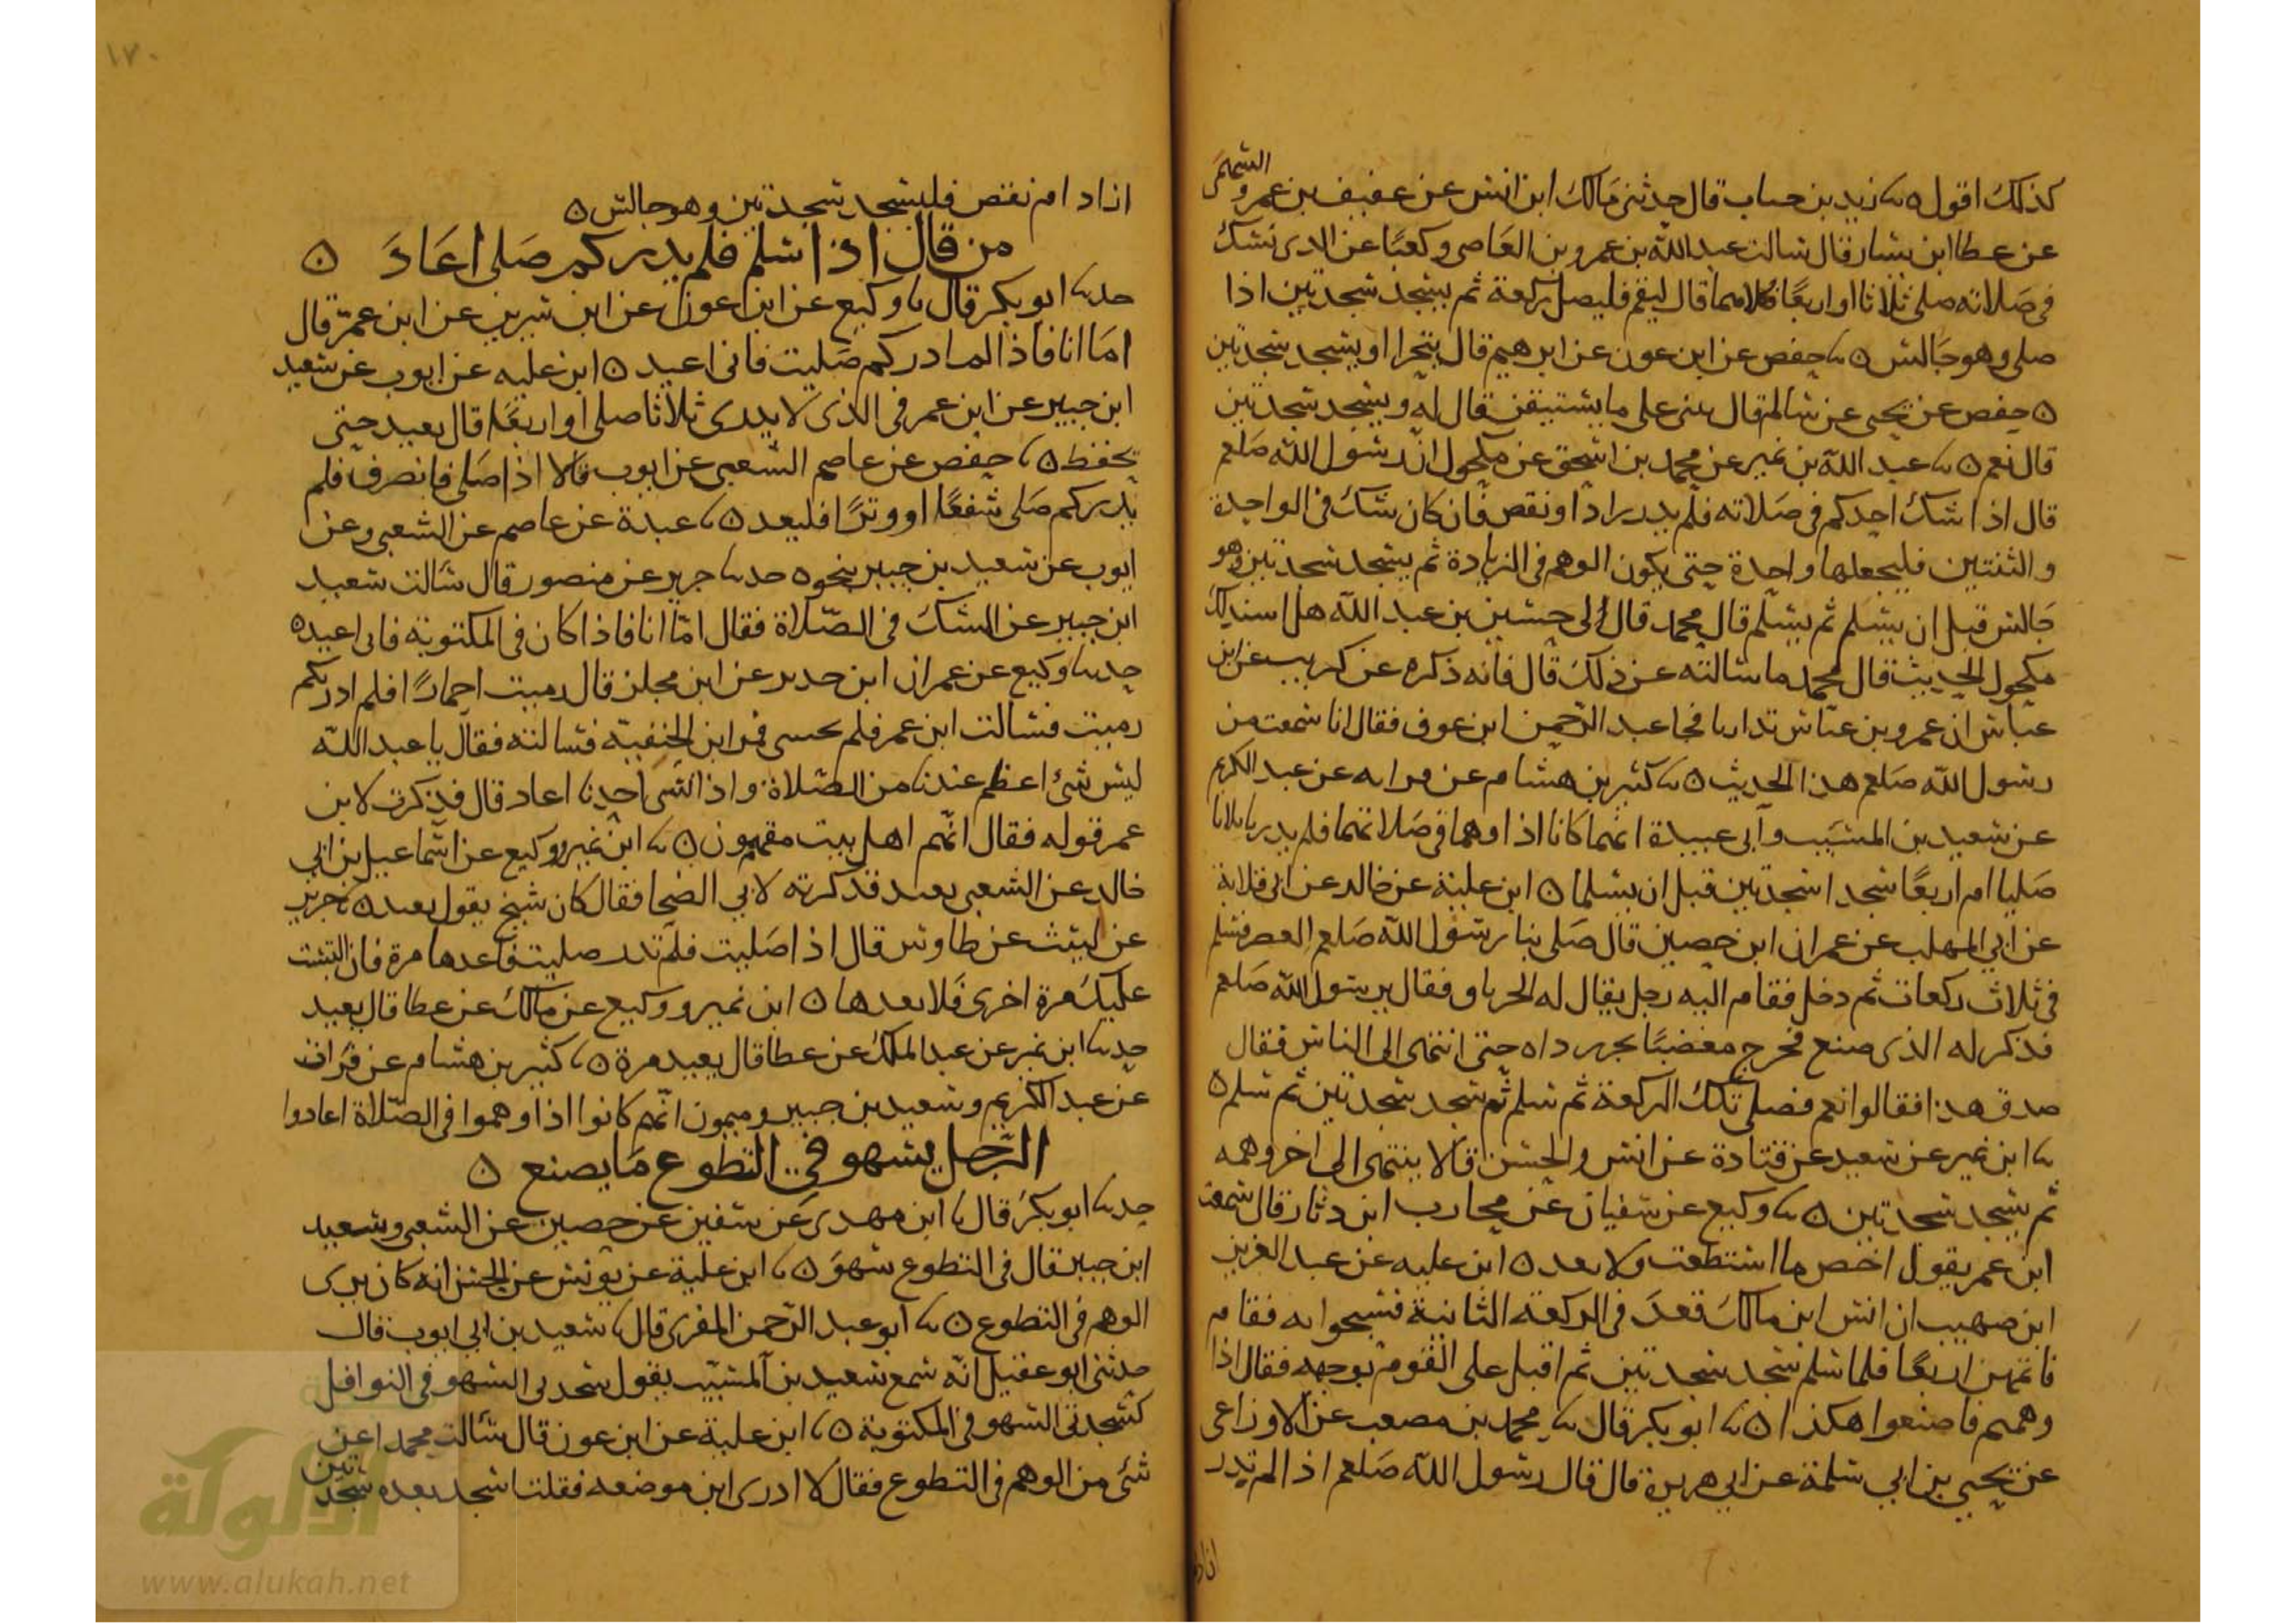 السهمي
كذلك اقول ○ نا زيد بن حباب قال حدثني مالك ابن انس عن عفيف بن عمرو
عن عطا ابن يسار قال سالت عبد الله بن عمرو بن العاصي وكعبًا عن الذي يشك
في صلاته صلى ثلاثا او اربعًا فكلاهما قال ليقم فليصل ركعة ثم يسجد سجدتين اذا
صلى وهو جالس ○ نا حفص عن ابن عون عن ابرهيم قال يتحرا او يسجد سجدتين
○ حفص عن يحيى عن سالم قال يبنى على ما يستيقن قال له ويسجد سجدتين
قال نعم ○ نا عبد الله بن نمير عن محمد بن اسحق عن مكحول ان رسول الله صلعم
قال اذا شك احدكم في صلاته فلم يدر زاد او نقص فان كان شك في الواحدة
والثنتين فليجعلها واحدة حتى يكون الوهم في الزيادة ثم يسجد سجدتين وهو
جالس قبل ان يسلم ثم يسلم قال محمد قال لى حسين بن عبد الله هل اسند لك
مكحول الحديث قال محمد ما سالته عن ذلك قال فانه ذكره عن كريب عن ابن
عباس ان عمر وبن عباس تداريا فجا عبد الرحمن ابن عوف فقال انا سمعت من
رسول الله صلعم هذا الحديث ○ نا كثير بن هشام عن فرات عن عبد الكريم
عن سعيد بن المسيب وابى عبيدة انهما كانا اذا وهما في صلاتهما فلم يدريا ثلاثا
صليا ام اربعًا سجدا سجدتين قبل ان يسلما ○ ابن علية عن خالد عن ابى قلابة
عن ابي المهلب عن عمران ابن حصين قال صلى بنا رسول الله صلعم العصر فسلم
في ثلاث ركعات ثم دخل فقام اليه رجل يقال له الخرباق فقال يرسول الله صلعم
فذكر له الذى صنع فخرج مغضبًا يجر رداه حتى انتهى الى الناس فقال
صدق هذا فقالوا نعم فصلى تلك الركعة ثم سلم ثم سجد سجدتين ثم سلم ○
نا ابن نمير عن سعيد عن قتادة عن انس والحسن قالا ينتهى الى اخر وهمه
ثم يسجد سجدتين ○ نا وكيع عن سفيان عن محارب ابن دثار قال سمعت
ابن عمر يقول احص ما استطعت ولا تعد ○ ابن عليه عن عبد العزيز
ابن صهيب ان انس ابن مالك قعد في الركعة الثانية فسبحوا به فقام
فاتمهن اربعًا فلما سلم سجد سجدتين ثم اقبل على القوم بوجهه فقال اذا
وهمتم فاصنعوا هكذا ○ نا ابو بكر قال نا محمد بن مصعب عن الاوزاعى
عن يحيى بن ابي سلمة عن ابي هريرة قال قال رسول الله صلعم اذا لم يدر
١٧٠
ازاد ام نقص فليسجد سجدتين وهو جالس ○
من قال اذا سلم فلم يدر كم صلى اعاد ○
حدثنا ابو بكر قال نا وكيع عن ابن عون عن ابن سيرين عن ابن عمر قال
اما انا فاذا لم ادر كم صليت فانى اعيد ○ ابن عليه عن ايوب عن سعيد
ابن جبير عن ابن عمر في الذى لا يدرى ثلاثا صلى او اربعًا قال يعيد حتى
يحفظ ○ نا حفص عن عاصم الشعبى عن ايوب قالا اذا صلى فانصرف فلم
يدر كم صلى شفعًا او وترًا فليعد ○ نا عبدة عن عاصم عن الشعبى وعن
ايوب عن سعيد بن جبير بنحوه حدثنا جرير عن منصور قال سالت سعيد
ابن جبير عن الشك في الصلاة فقال امّا انا فاذا كان في المكتوبة فانى اعيد ○
حدثنا وكيع عن عمران ابن حدير عن ابن مجلز قال رميت احمارًا فلم ادر بكم
رميت فسالت ابن عمر فلم يجبنى فمر ابن الحنفية فسالته فقال يا عبد الله
ليس شئ اعظم عندنا من الصلاة واذا انسى احدنا اعاد قال فذكرت لابن
عمر قوله فقال انهم اهل بيت مفهمون ○ نا ابن نمير ووكيع عن اسماعيل بن ابي
خالد عن الشعبى يعيد فذكرته لابي الضحا فقال كان شيخ يقول يعيد ○ نا جرير
عن ليث عن طاوس قال اذا صليت فلم تدر صليت فاعدها مرة فان التبست
عليك مرة اخرى فلا تعدها ○ ابن نمير ووكيع عن مالك عن عطا قال يعيد
حدثنا ابن نمير عن عبد الملك عن عطا قال يعيد مرة ○ نا كثير بن هشام عن فرات
عن عبد الكريم وسعيد بن جبير وميمون انهم كانوا اذا وهموا في الصلاة اعادوا
الرجل يسهو في التطوع ما يصنع ○
حدثنا ابو بكر قال نا ابن مهدى عن سفين عن حصين عن الشعبى وسعيد
ابن جبير قال في التطوع سهو ○ نا ابن علية عن يونس عن الحسن انه كان يرى
الوهم في التطوع ○ نا ابو عبد الرحمن المقرى قال نا سعيد بن ابي ايوب قال
حدثنى ابو عقيل انه سمع سعيد بن المسيب يقول سجدتى السهو في النوافل
كسجدتى السهو في المكتوبة ○ نا ابن علية عن ابن عون قال سالت محمدا عن
شئ من الوهم في التطوع فقال لا ادرى اين موضعه فقلت اسجد بعده سجدتين
الألوكة
www.alukah.net